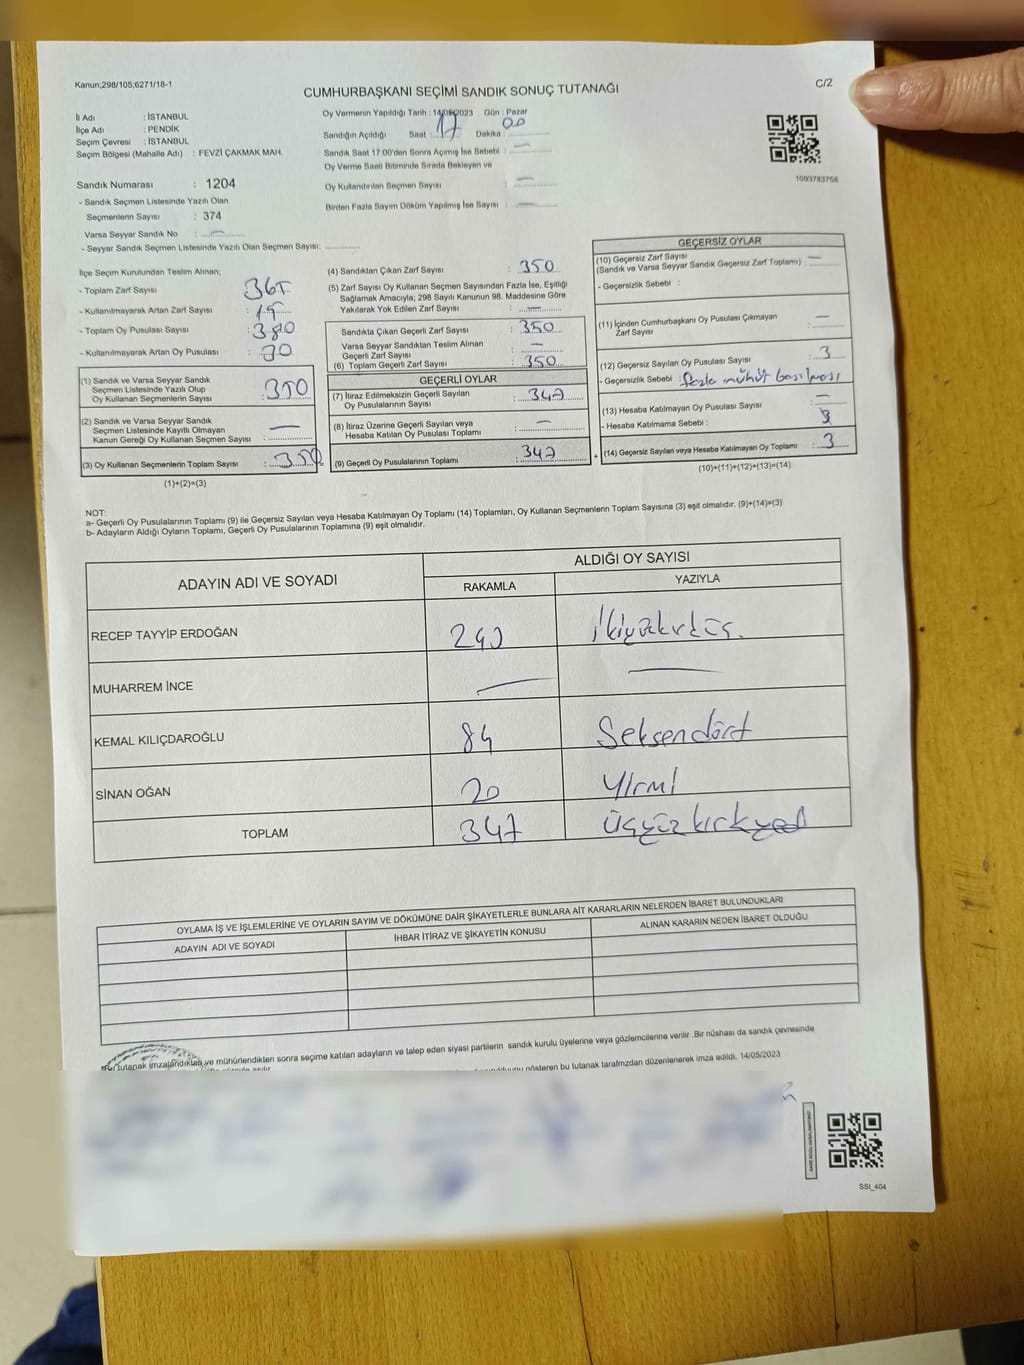 Kanun;298/105;6271/18-1
C/2
CUMHURBAŞKANI SEÇİMİ SANDIK SONUÇ TUTANAĞI
İl Adı : İSTANBUL
İlçe Adı : PENDİK
Seçim Çevresi : İSTANBUL
Seçim Bölgesi (Mahalle Adı) : FEVZİ ÇAKMAK MAH.
Sandık Numarası : 1204
- Sandık Seçmen Listesinde Yazılı Olan
Seçmenlerin Sayısı : 374
Varsa Seyyar Sandık No : —
- Seyyar Sandık Seçmen Listesinde Yazılı Olan Seçmen Sayısı:
Oy Vermenin Yapıldığı Tarih : 14/05/2023 Gün : Pazar
Sandığın Açıldığı Saat : 17 Dakika : 00
Sandık Saat 17:00'den Sonra Açımış İse Sebebi : —
Oy Verme Saati Bitiminde Sırada Bekleyen ve
Oy Kullandırılan Seçmen Sayısı : —
Birden Fazla Sayım Döküm Yapılmış İse Sayısı : —
1093783758
İlçe Seçim Kurulundan Teslim Alınan;
- Toplam Zarf Sayısı : 365
- Kullanılmayarak Artan Zarf Sayısı : 15
- Toplam Oy Pusulası Sayısı : 380
- Kullanılmayarak Artan Oy Pusulası : 30
(1) Sandık ve Varsa Seyyar Sandık
Seçmen Listesinde Yazılı Olup
Oy Kullanan Seçmenlerin Sayısı : 350
(2) Sandık ve Varsa Seyyar Sandık
Seçmen Listesinde Kayıtlı Olmayan
Kanun Gereği Oy Kullanan Seçmen Sayısı : —
(3) Oy Kullanan Seçmenlerin Toplam Sayısı : 350
(1)+(2)=(3)
(4) Sandıktan Çıkan Zarf Sayısı : 350
(5) Zarf Sayısı Oy Kullanan Seçmen Sayısından Fazla İse, Eşitliği
Sağlamak Amacıyla; 298 Sayılı Kanunun 98. Maddesine Göre
Yakılarak Yok Edilen Zarf Sayısı : —
Sandıkta Çıkan Geçerli Zarf Sayısı : 350
Varsa Seyyar Sandıktan Teslim Alınan
Geçerli Zarf Sayısı : —
(6) Toplam Geçerli Zarf Sayısı : 350
GEÇERLİ OYLAR
(7) İtiraz Edilmeksizin Geçerli Sayılan
Oy Pusulalarının Sayısı : 347
(8) İtiraz Üzerine Geçerli Sayılan veya
Hesaba Katılan Oy Pusulası Toplamı : —
(9) Geçerli Oy Pusulalarının Toplamı : 347
GEÇERSİZ OYLAR
(10) Geçersiz Zarf Sayısı : —
(Sandık ve Varsa Seyyar Sandık Geçersiz Zarf Toplamı)
- Geçersizlik Sebebi :
(11) İçinden Cumhurbaşkanı Oy Pusulası Çıkmayan
Zarf Sayısı : —
(12) Geçersiz Sayılan Oy Pusulası Sayısı : 3
- Geçersizlik Sebebi : fazla mühür basılması
(13) Hesaba Katılmayan Oy Pusulası Sayısı : —
- Hesaba Katılmama Sebebi :
(14) Geçersiz Sayılan veya Hesaba Katılmayan Oy Toplamı : 3
(10)+(11)+(12)+(13)=(14)
NOT:
a- Geçerli Oy Pusulalarının Toplamı (9) ile Geçersiz Sayılan veya Hesaba Katılmayan Oy Toplamı (14) Toplamları, Oy Kullanan Seçmenlerin Toplam Sayısına (3) eşit olmalıdır. (9)+(14)=(3)
b- Adayların Aldığı Oyların Toplamı, Geçerli Oy Pusulalarının Toplamına (9) eşit olmalıdır.
ADAYIN ADI VE SOYADI
ALDIĞI OY SAYISI
RAKAMLA YAZIYLA
RECEP TAYYİP ERDOĞAN 243 İkiyüzkırküç.
MUHARREM İNCE — —
KEMAL KILIÇDAROĞLU 84 Seksendört
SİNAN OĞAN 20 Yirmi
TOPLAM 347 Üçyüzkırkyedi
OYLAMA İŞ VE İŞLEMLERİNE VE OYLARIN SAYIM VE DÖKÜMÜNE DAİR ŞİKAYETLERLE BUNLARA AİT KARARLARIN NELERDEN İBARET BULUNDUKLARI
ADAYIN ADI VE SOYADI İHBAR İTİRAZ VE ŞİKAYETİN KONUSU ALINAN KARARIN NEDEN İBARET OLDUĞU
tutanak imzalandıktan ve mühürlendikten sonra seçime katılan adayların ve talep eden siyasi partilerin sandık kurulu üyelerine veya gözlemcilerine verilir. Bir nüshası da sandık çevresinde
gösteren bu tutanak tarafımızdan düzenlenerek imza edildi. 14/05/2023
SSI_404